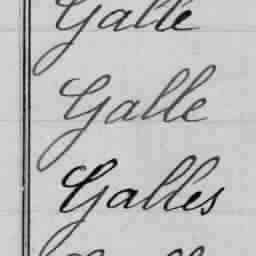 Galle
Galle
Galles